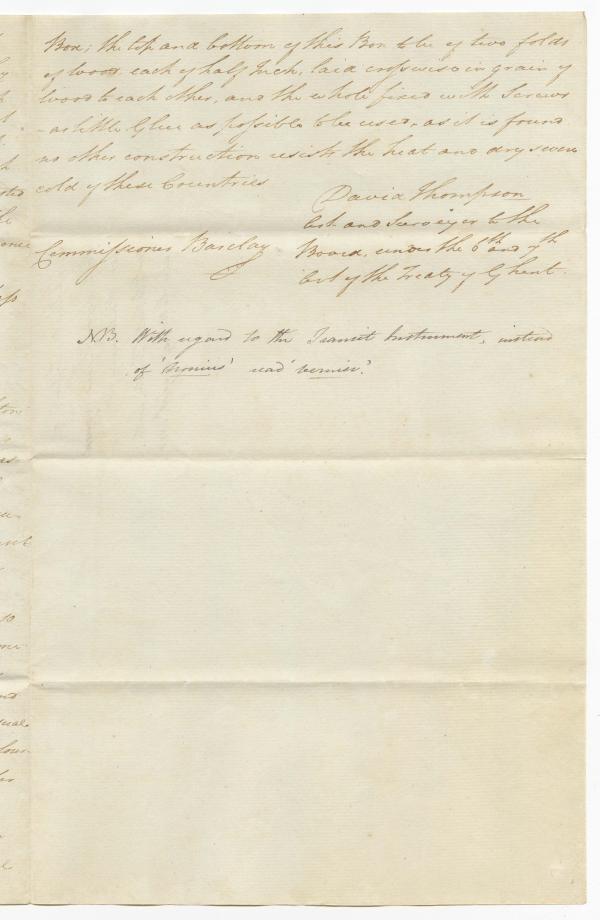 Box; the top and bottom of this Box to be of two folds
of wood each of half Inch, laid crosswise in grain of
wood to each other, and the whole fixed with Screws
- as little Glue as possible to be used, as it is found
no other construction resists the heat and dry severe
cold of these Countries
David Thompson
Ast. and Surveyor to the
Commissioner Barclay
Board, under the 6th and 7th
Art of the Treaty of Ghent.
NB. With regard to the Transit Instrument, instead
of 'Nonius' read 'vernier.'